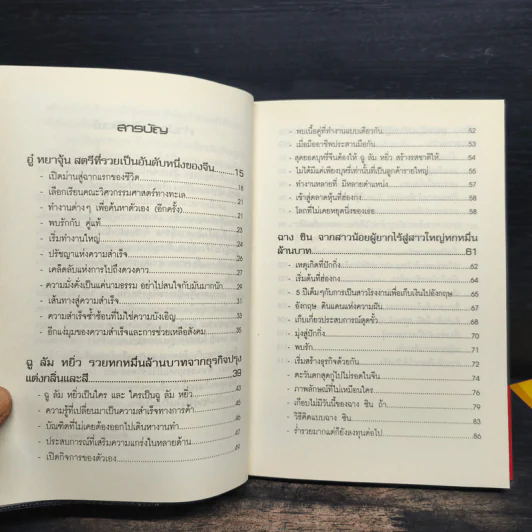 สารบัญ
อู่ หยาจุ้น สตรีที่รวยเป็นอันดับหนึ่งของจีน 15
- เปิดม่านสู่ฉากแรกของชีวิต 16
- เลือกเรียนคณะวิศวกรรมศาสตร์ทางทะเล
- ทำงานต่างๆ เพื่อค้นหาตัวเอง (อีกครั้ง) 21
- พบรักกับ คู่แท้ 23
- เริ่มทำงานใหญ่ 24
- ปรัชญาแห่งความสำเร็จ
- เคล็ดลับแห่งการไปถึงดวงดาว
- ความมั่งคั่งเป็นแค่นามธรรม อย่าไปสนใจกับมันมากนัก
- เส้นทางสู่ความสำเร็จ 31
- ความสำเร็จซ้ำซ้อนที่ไม่ใช่ความบังเอิญ
- อีกแง่มุมของความสำเร็จและการช่วยเหลือสังคม 35
ฉู ลัม หยิ่ว รวยหกหมื่นล้านบาทจากธุรกิจปรุง
แต่งกลิ่นและสี 39
- ฉู ลัม หยิ่วเป็นใคร และ ใครเป็นฉู ลัม หยิ่ว
- ความรู้ที่เปลี่ยนมาเป็นความสำเร็จทางการค้า 44
- บัณฑิตที่ไม่เคยต้องออกไปเดินหางานทำ
- ประสบการณ์ที่เสริมความแกร่งในหลายด้าน
- เปิดกิจการของตัวเอง
- พบเนื้อคู่ที่ทำงานแบบเดียวกัน 52
- เมื่อมืออาชีพประสานมือกัน 53
- สุดยอดบุหรี่จีนต้องให้ ฉู ลัม หยิ่ว สร้างรสชาติให้ 54
- ไม่ได้มีแค่เพียงบุหรี่เท่านั้นที่เป็นลูกค้ารายใหญ่ 55
- ทำงานหลายที่ มีหลายตำแหน่ง 56
- เข้าสู่ตลาดหุ้นที่ฮ่องกง 58
- โลกที่ไม่เคยหยุดนิ่งของเธอ 58
ฉาง ซิน จากสาวน้อยผู้ยากไร้สู่สาวใหญ่หกหมื่น
ล้านบาท 61
- เหตุเกิดที่ปักกิ่ง 62
- เริ่มต้นที่ฮ่องกง 64
- 5 ปีเต็มๆกับการเป็นสาวโรงงานเพื่อเก็บเงินไปอังกฤษ 65
- อังกฤษ ดินแดนแห่งความฝัน 66
- เก็บเกี่ยวประสบการณ์สุดขั้ว
- มุ่งสู่ปักกิ่ง
- พบรัก
- เริ่มสร้างธุรกิจด้วยกัน
- ตะวันตกสุดกู่ไปไม่รอดในจีน
- ภาพลักษณ์ที่ไม่เหมือนใคร
- เกือบไม่มีวันนี้ของฉาง ซิน ถ้า
- วิธีคิดแบบฉาง ซิน 83
- ร่ำรวยมากแต่ก็ยังลงทุนต่อไป 86